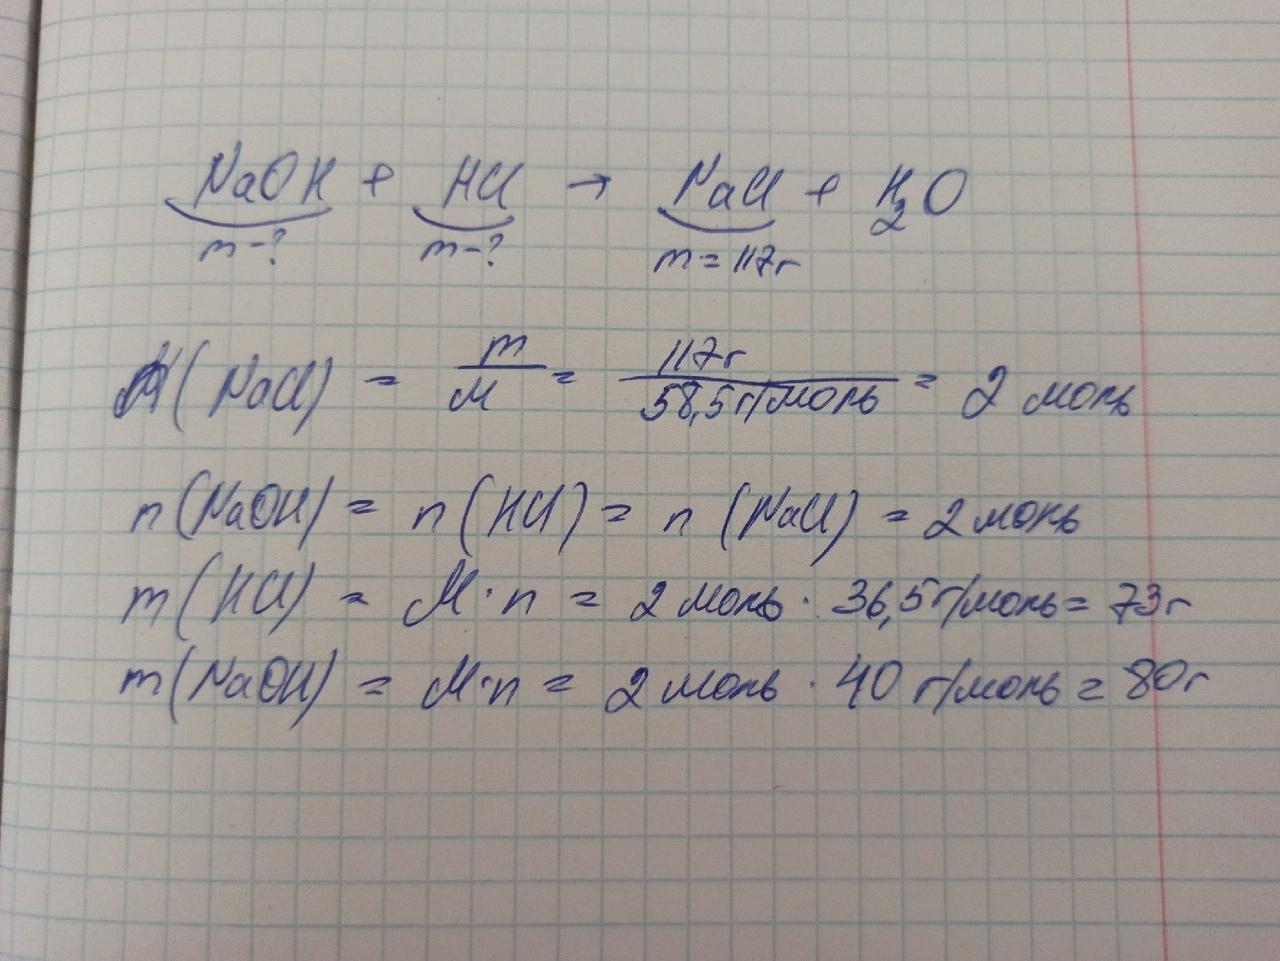 NaOH + HCl → NaCl + H₂O
m-? m-? m = 117г
(NaCl) = m/M = 117г/58,5г/моль = 2 моль
n(NaOH) = n(HCl) = n(NaCl) = 2 моль
m(HCl) = M·n = 2 моль · 36,5г/моль = 73г
m(NaOH) = M·n = 2 моль · 40 г/моль = 80г